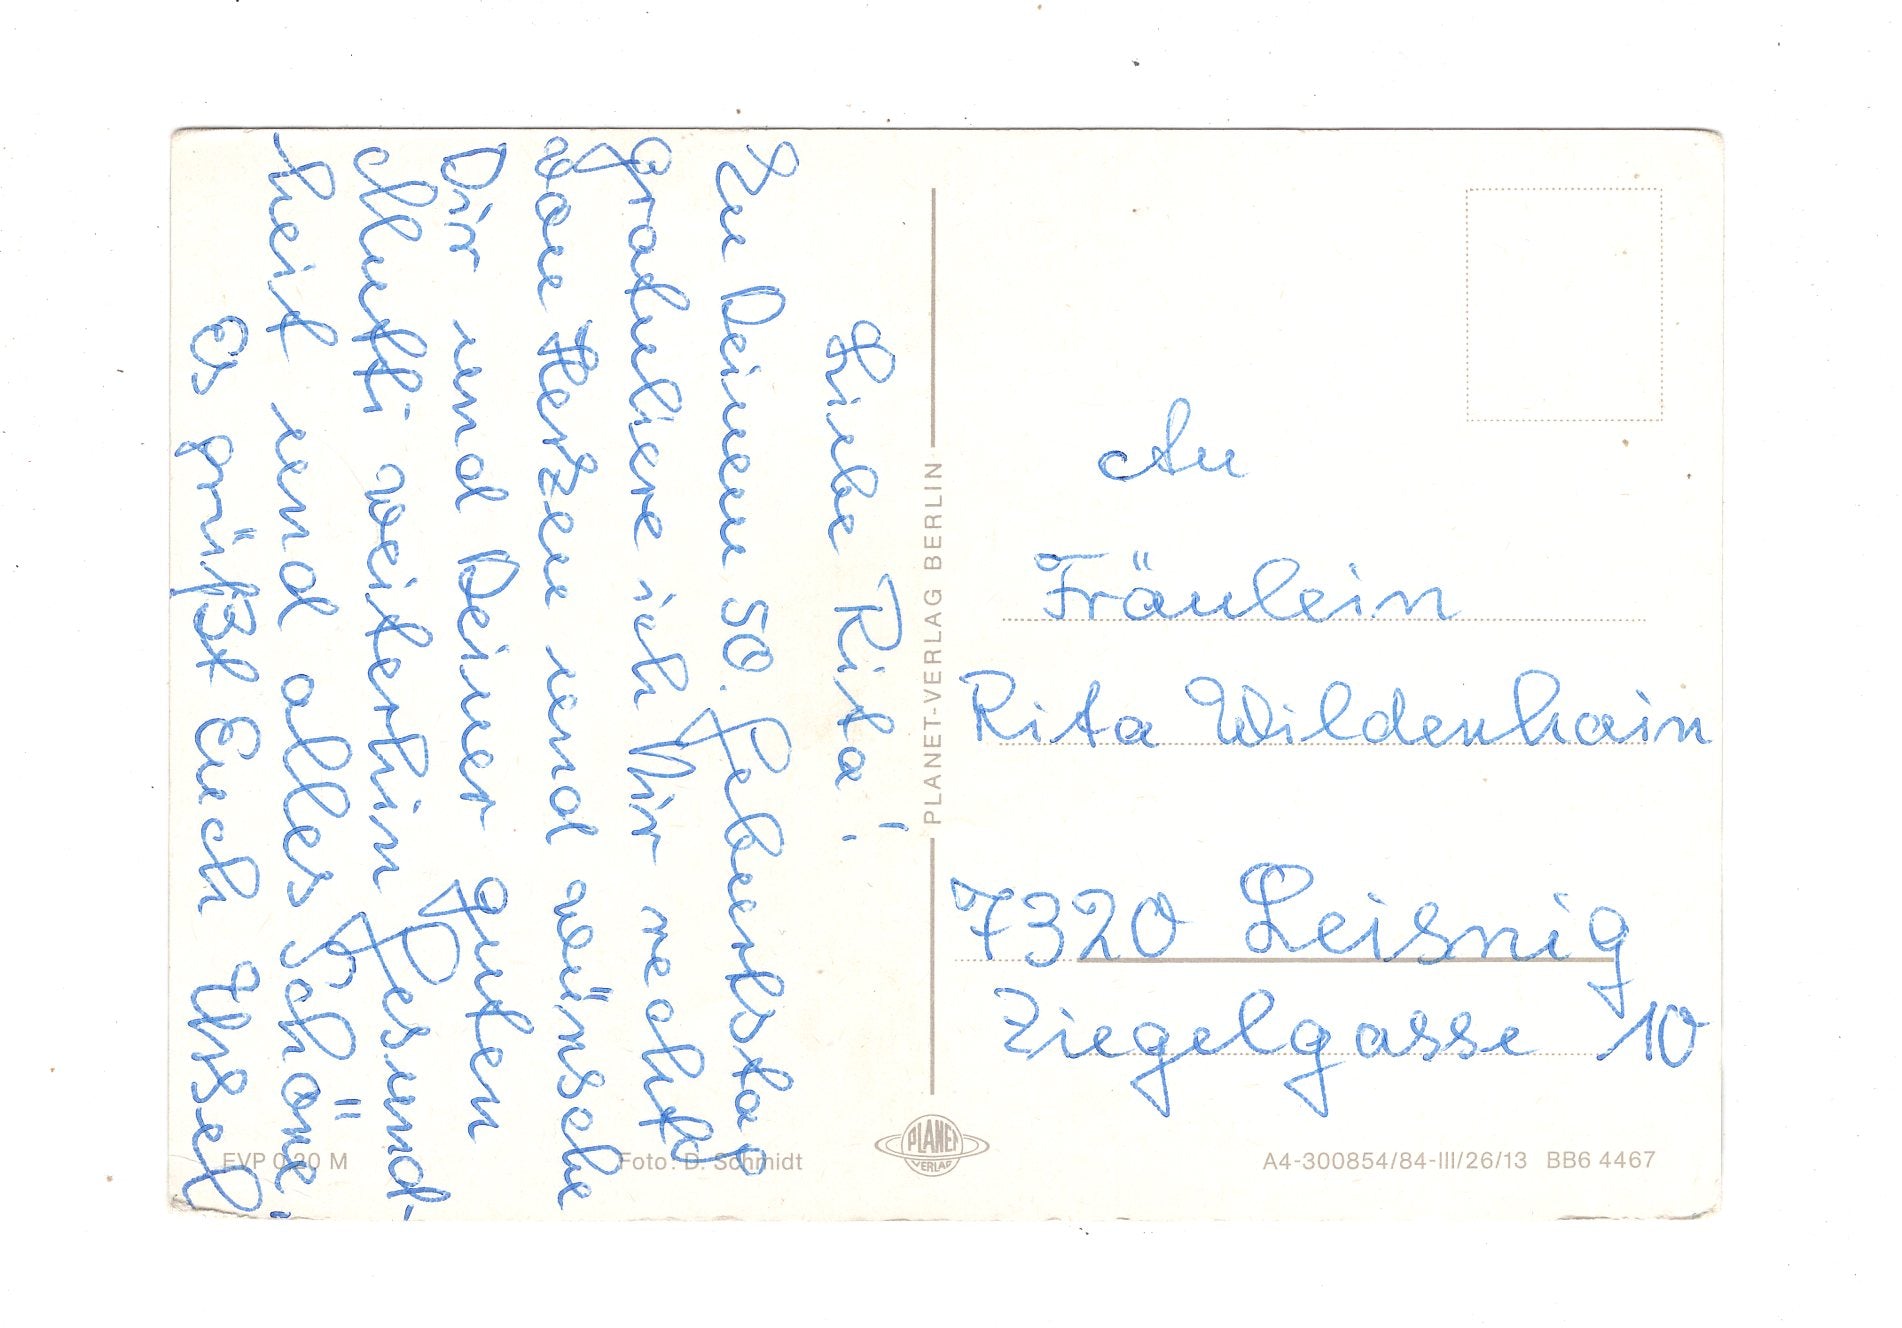 Liebe Rita!
Zu Deinem 50. Geburtstag
gratuliere ich Dir recht
von Herzen und wünsche
Dir und Deiner guten
Mutti weiterhin Gesund-
heit und alles Schöne.
Es grüßt Euch Ursel
PLANET-VERLAG BERLIN
An
Fräulein
Rita Wildenhain
7320 Leisnig
Ziegelgasse 10
EVP 0,20 M
Foto: D. Schmidt
PLANET
VERLAG
A4-300854/84-III/26/13 BB6 4467